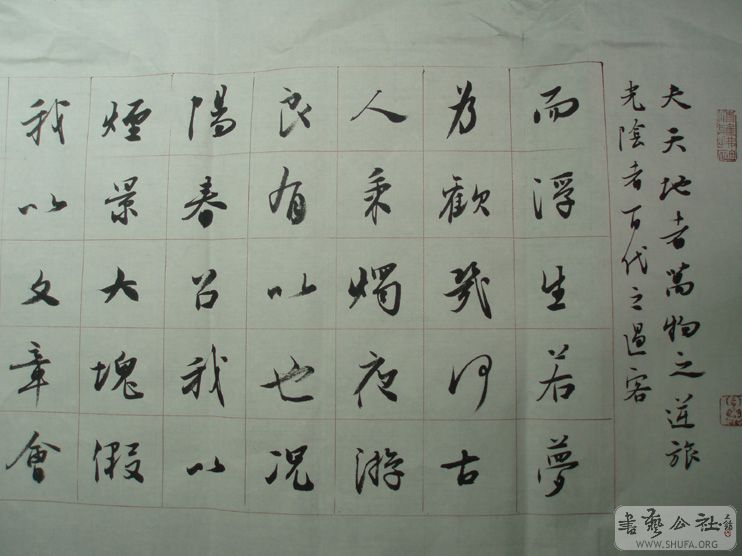 夫天地者萬物之逆旅
光陰者百代之過客
而浮生若夢
為歡幾何古
人秉燭夜游
良有以也況
陽春召我以
煙景大塊假
我以文章會
書藝公社
WWW.SHUFA.ORG